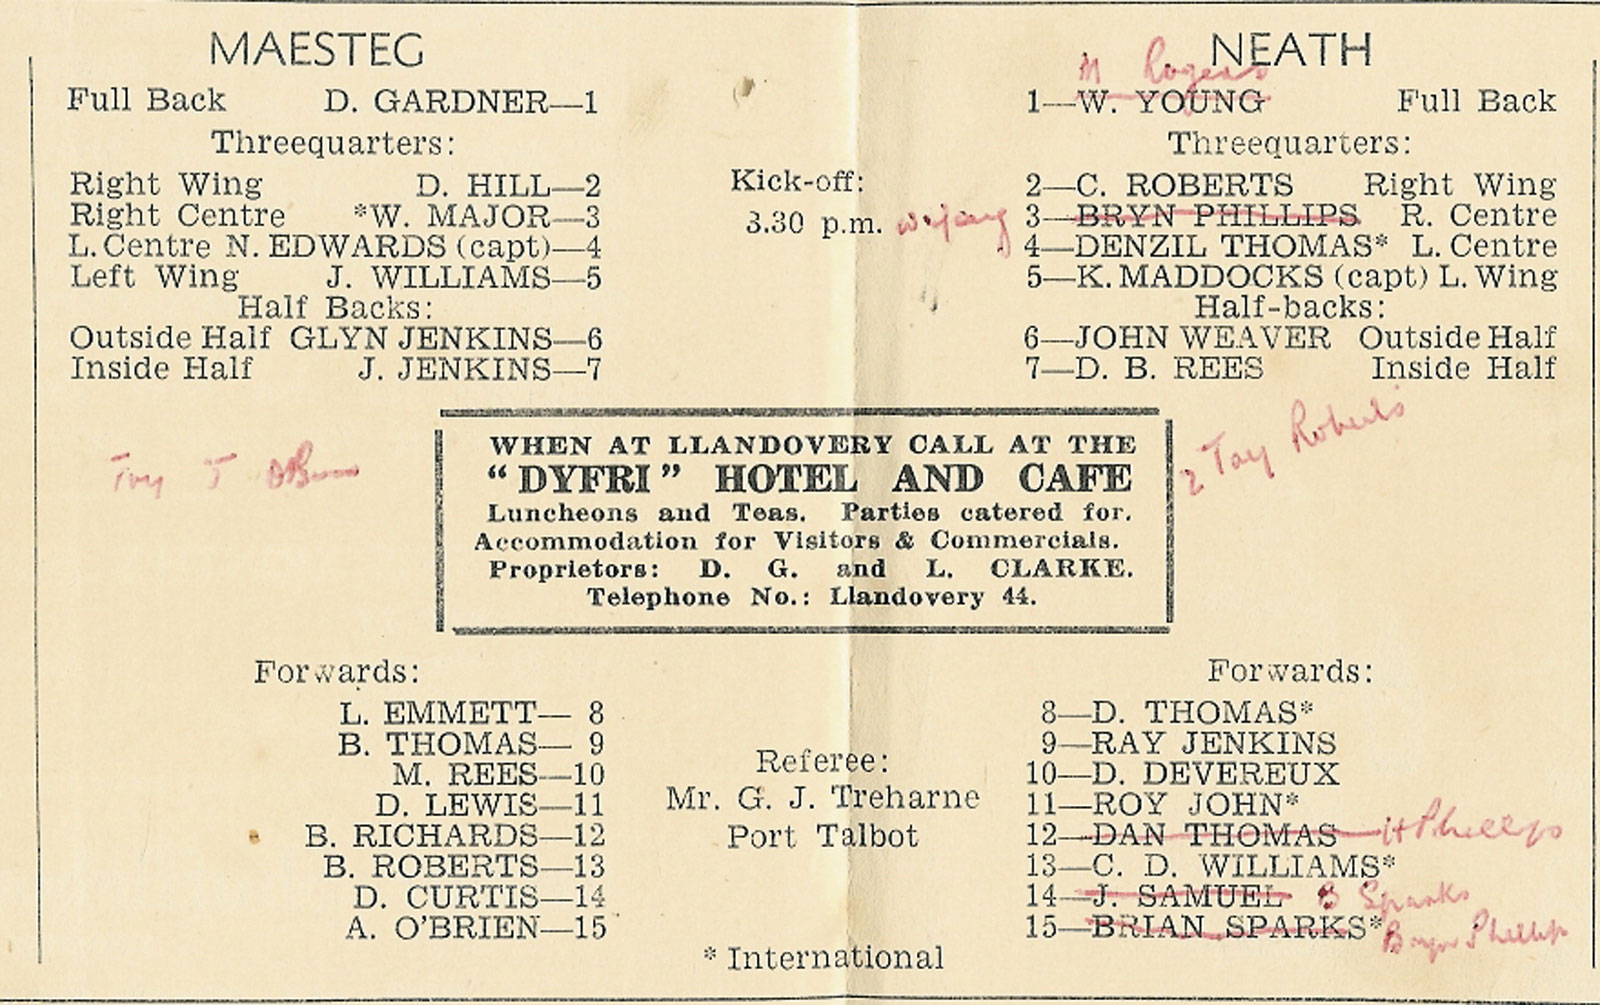 MAESTEG
Full Back D. GARDNER—1
Threequarters:
Right Wing D. HILL—2
Right Centre *W. MAJOR—3
L. Centre N. EDWARDS (capt)—4
Left Wing J. WILLIAMS—5
Half Backs:
Outside Half GLYN JENKINS—6
Inside Half J. JENKINS—7
Kick-off:
3.30 p.m.
NEATH
M Rogers
1—W. YOUNG Full Back
Threequarters:
2—C. ROBERTS Right Wing
3—BRYN PHILLIPS R. Centre
4—DENZIL THOMAS* L. Centre
5—K. MADDOCKS (capt) L. Wing
Half-backs:
6—JOHN WEAVER Outside Half
7—D. B. REES Inside Half
Try J O'Brien
WHEN AT LLANDOVERY CALL AT THE
"DYFRI" HOTEL AND CAFE
Luncheons and Teas. Parties catered for.
Accommodation for Visitors & Commercials.
Proprietors: D. G. and L. CLARKE.
Telephone No.: Llandovery 44.
2 Try Roberts
Forwards:
L. EMMETT— 8
B. THOMAS— 9
M. REES—10
D. LEWIS—11
B. RICHARDS—12
B. ROBERTS—13
D. CURTIS—14
A. O'BRIEN—15
Referee:
Mr. G. J. Treharne
Port Talbot
* International
Forwards:
8—D. THOMAS*
9—RAY JENKINS
10—D. DEVEREUX
11—ROY JOHN*
12—DAN THOMAS H Phillips
13—C. D. WILLIAMS*
14—J. SAMUEL B Sparks
15—BRIAN SPARKS* Phillips